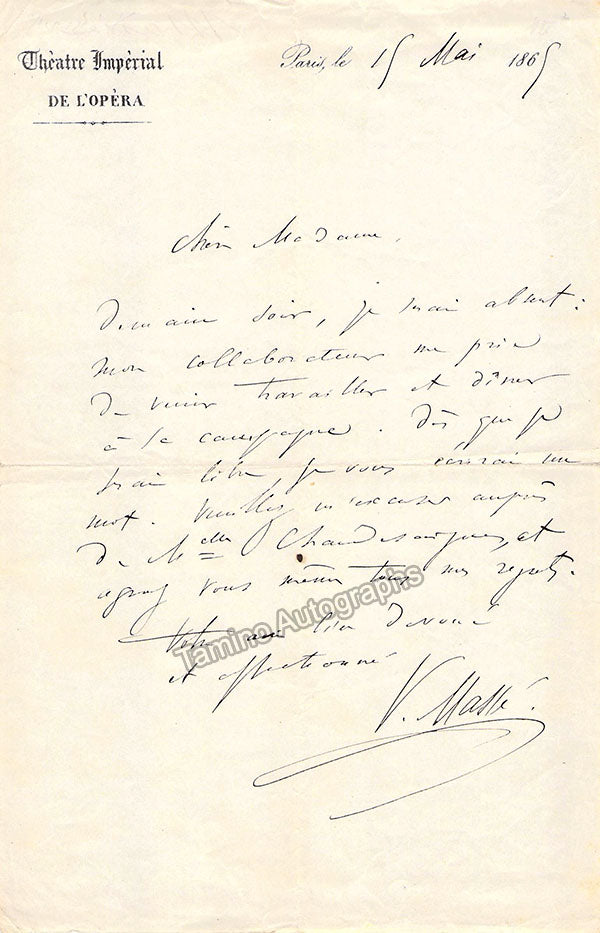 Théatre Impérial
DE L'OPÉRA
Paris, le 15 Mai 1865
Chère Madame,
Demain soir, je serai absent :
mon collaborateur me prie
de venir travailler et dîner
à la campagne. Dès que je
serai libre, je vous écrirai un
mot. Veuillez m'excuser auprès
de Melle Chaudesaigues, et
agréez vous même tous mes regrets.
Votre bien dévoué
et affectionné
V. Massé.
Tamino Autographs